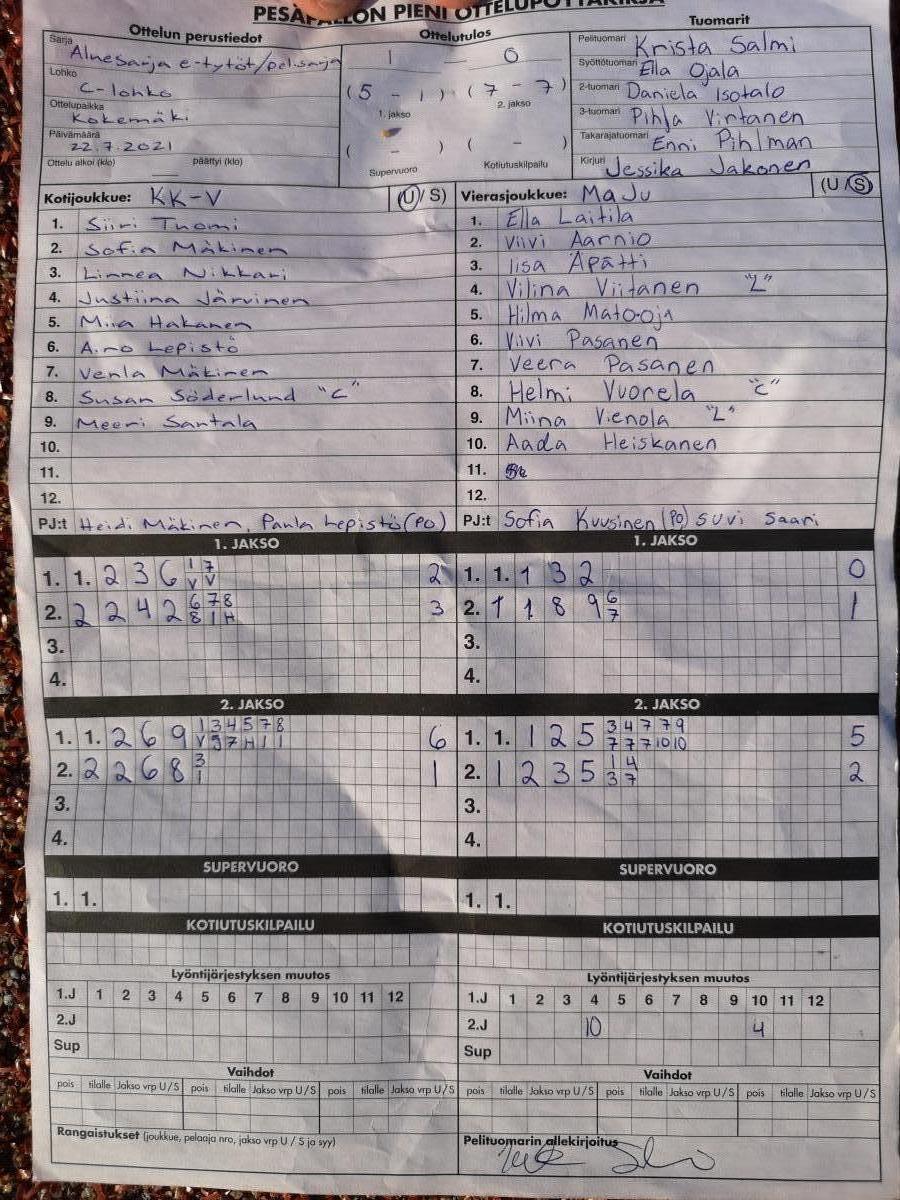 PESÄPALLON PIENI OTTELUPÖYTÄKIRJA
Ottelun perustiedot
Sarja Aluesarja e-tytöt/pelisarja
Lohko C-lohko
Ottelupaikka Kokemäki
Päivämäärä 22.7.2021
Ottelu alkoi (klo) päättyi (klo)
Ottelutulos
1 - 0
(5 - 1) (7 - 7)
1. jakso 2. jakso
( - ) ( - )
Supervuoro Kotiutuskilpailu
Tuomarit
Pelituomari Krista Salmi
Syöttötuomari Ella Ojala
2-tuomari Daniela Isotalo
3-tuomari Pihla Virtanen
Takarajatuomari Enni Pihlman
Kirjuri Jessika Jakonen
Kotijoukkue: KK-V (U/S)
1. Siiri Tuomi
2. Sofia Mäkinen
3. Linnea Nikkari
4. Justiina Järvinen
5. Miia Hakanen
6. Aino Lepistö
7. Venla Mäkinen
8. Susan Söderlund "C"
9. Meeri Santala
10.
11.
12.
PJ:t Heidi Mäkinen, Paula Lepistö (PO)
Vierasjoukkue: MaJu (U/S)
1. Ella Laitila
2. Viivi Aarnio
3. Iisa Äpätti
4. Vilina Viitanen "L"
5. Hilma Mato-oja
6. Viivi Pasanen
7. Veera Pasanen
8. Helmi Vuorela "C"
9. Miina Vienola "L"
10. Aada Heiskanen
11.
12.
PJ:t Sofia Kuusinen (PO) Suvi Saari
1. JAKSO
1. 1. 2 3 6 1 7 2
V V
2. 2 2 4 2 6 7 8 3
8 1 H
3.
4.
1. JAKSO
1. 1. 1 3 2 0
2. 1 1 8 9 6 1
7
3.
4.
2. JAKSO
1. 1. 2 6 9 1 3 4 5 7 8 6
V 9 7 H 1 1
2. 2 2 6 8 3 1
1
3.
4.
2. JAKSO
1. 1. 1 2 5 3 4 7 7 9 5
7 7 7 10 10
2. 1 2 3 5 1 4 2
3 7
3.
4.
SUPERVUORO
1. 1.
SUPERVUORO
1. 1.
KOTIUTUSKILPAILU
KOTIUTUSKILPAILU
Lyöntijärjestyksen muutos
1.J 1 2 3 4 5 6 7 8 9 10 11 12
2.J
Sup
Lyöntijärjestyksen muutos
1.J 1 2 3 4 5 6 7 8 9 10 11 12
2.J 10 4
Sup
Vaihdot
pois tilalle Jakso vrp U/S pois tilalle Jakso vrp U/S pois tilalle Jakso vrp U/S
Vaihdot
pois tilalle Jakso vrp U/S pois tilalle Jakso vrp U/S pois tilalle Jakso vrp U/S
Rangaistukset (joukkue, pelaaja nro, jakso vrp U / S ja syy)
Pelituomarin allekirjoitus